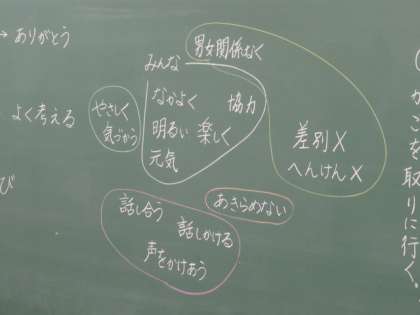 → ありがとう
よく考える
び
男女関係なく
みんな
なかよく
協力
明るい 楽しく
元気
やさしく
気づかう
差別X
へんけんX
あきらめない
話し合う
話しかける
声をかけあう
かごを取りに行く。